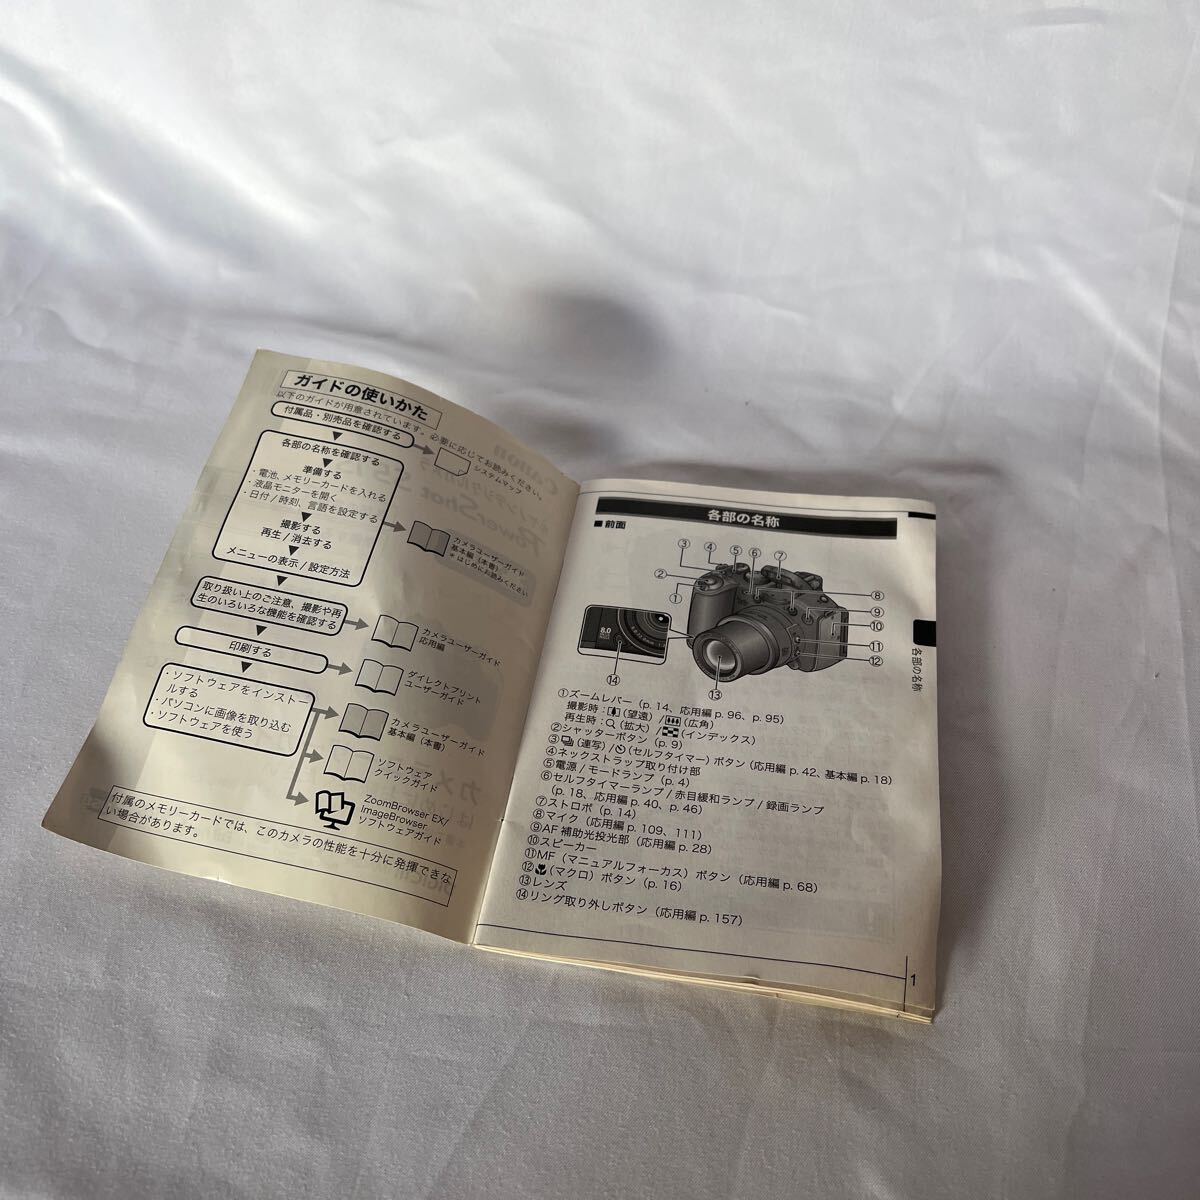 ガイドの使いかた
以下のガイドが用意されています。必要に応じてお読みください。
付属品・別売品を確認する
システムマップ
各部の名称を確認する
準備する
・電池、メモリーカードを入れる
・液晶モニターを開く
・日付/時刻、言語を設定する
撮影する
再生/消去する
メニューの表示/設定方法
カメラユーザーガイド
基本編（本書）
＊はじめにお読みください
取り扱い上のご注意、撮影や再
生のいろいろな機能を確認する
カメラユーザーガイド
応用編
印刷する
ダイレクトプリント
ユーザーガイド
・ソフトウェアをインストー
ルする
・パソコンに画像を取り込む
・ソフトウェアを使う
カメラユーザーガイド
基本編（本書）
ソフトウェア
クイックガイド
ZoomBrowser EX/
ImageBrowser
ソフトウェアガイド
付属のメモリーカードでは、このカメラの性能を十分に発揮できな
い場合があります。
各部の名称
■前面
③ ④ ⑤ ⑥ ⑦
② ①
⑧
⑨
⑩
⑪
⑫
8.0
⑭
⑬
①ズームレバー（p. 14、応用編 p. 96、p. 95）
撮影時：（望遠）/（広角）
再生時：（拡大）/（インデックス）
②シャッターボタン（p. 9）
③（連写）/（セルフタイマー）ボタン（応用編 p. 42、基本編 p. 18）
④ネックストラップ取り付け部
⑤電源/モードランプ（p. 4）
⑥セルフタイマーランプ/赤目緩和ランプ/録画ランプ
（p. 18、応用編 p. 40、p. 46）
⑦ストロボ（p. 14）
⑧マイク（応用編 p. 109、111）
⑨AF補助光投光部（応用編 p. 28）
⑩スピーカー
⑪MF（マニュアルフォーカス）ボタン（応用編 p. 68）
⑫（マクロ）ボタン（p. 16）
⑬レンズ
⑭リング取り外しボタン（応用編 p. 157）
各部の名称
1